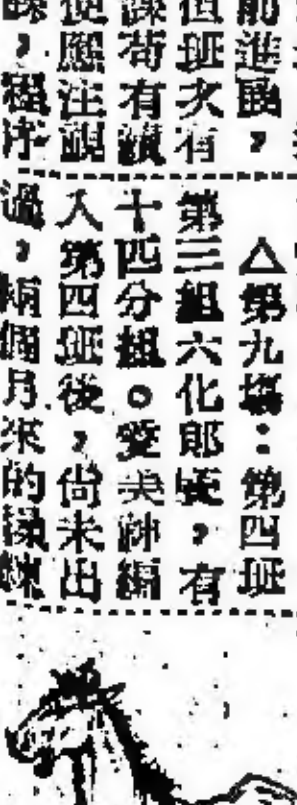 前進展，
但班次有
課苟有績
便應注視
，程序
△第九場：第四班
第三組六化郎，有
十四分組。愛美神編
入第四班後，尚未出
過，兩個月來的操練